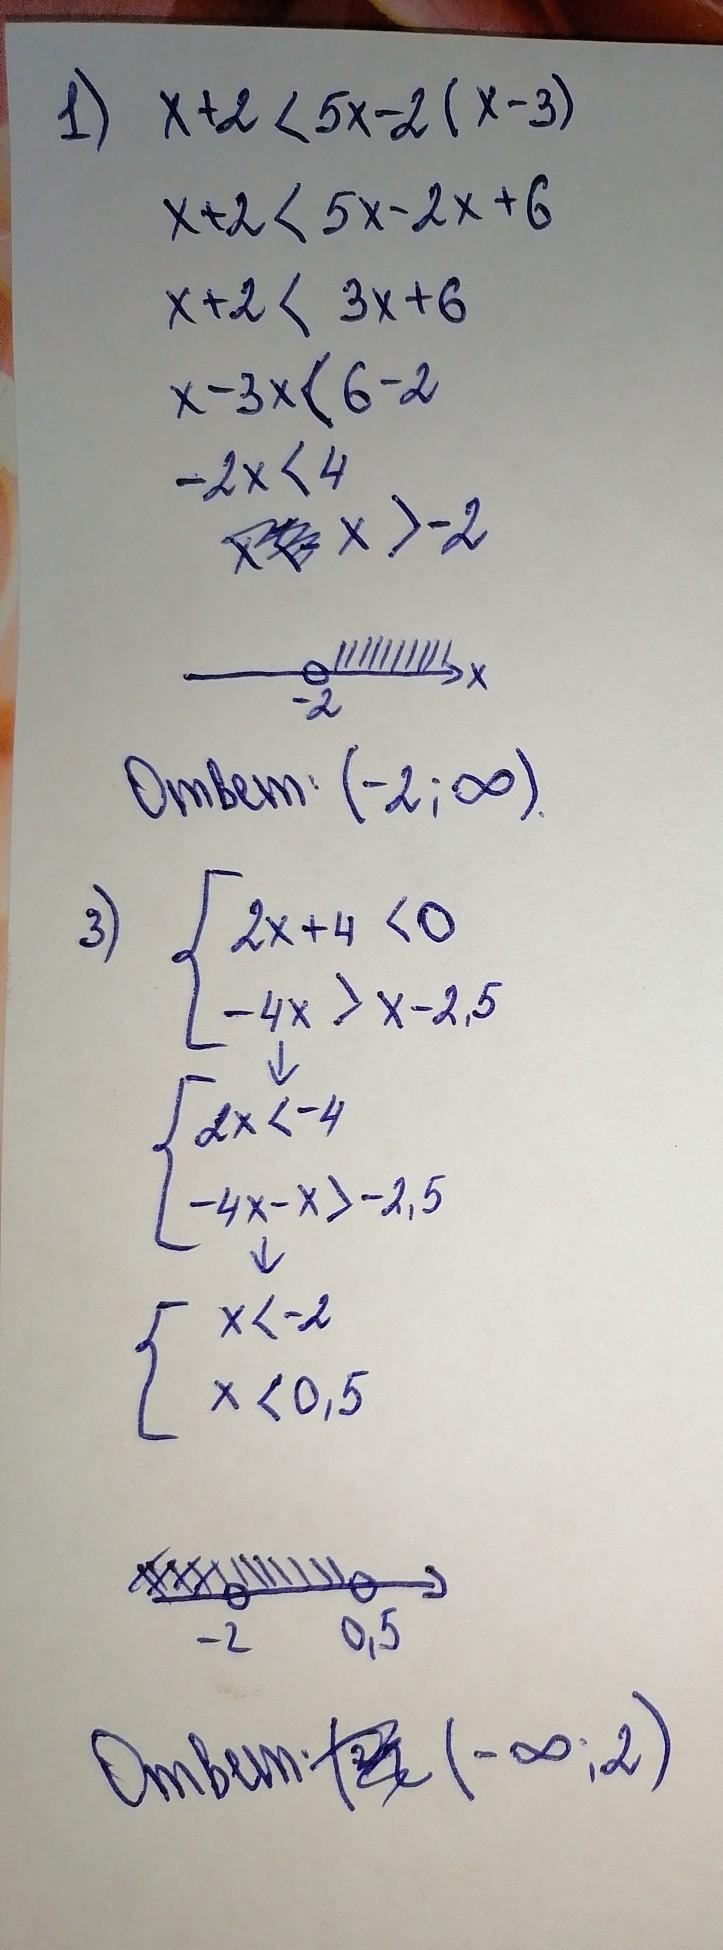 1) x+2<5x-2(x-3)
x+2<5x-2x+6
x+2<3x+6
x-3x<6-2
-2x<4
x>-2
x
-2
Ответ: (-2;∞).
3) {2x+4<0
-4x>x-2,5
↓
{2x<-4
-4x-x>-2,5
↓
{x<-2
x<0,5
-2 0,5
Ответ: (-∞;2)